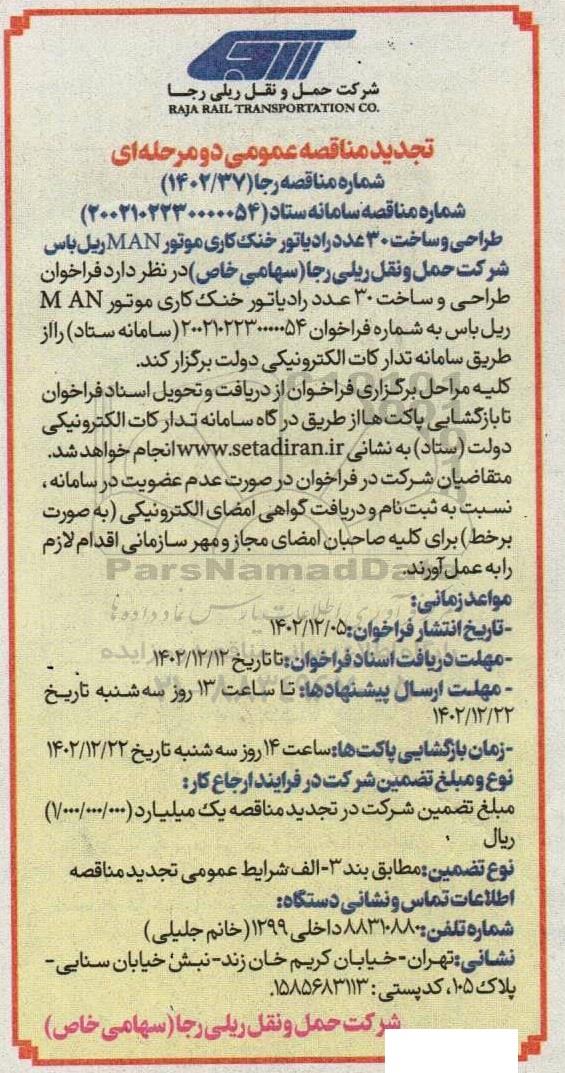 شرکت حمل و نقل ریلی رجا
RAJA RAIL TRANSPORTATION CO.
تجدید مناقصه عمومی دو مرحله‌ای
شماره مناقصه رجا (۱۴۰۲/۳۷)
شماره مناقصه سامانه ستاد (۲۰۰۲۱۰۲۲۳۰۰۰۰۰۵۴)
طراحی و ساخت ۳۰ عدد رادیاتور خنک کاری موتور MAN ریل باس
شرکت حمل و نقل ریلی رجا (سهامی خاص) در نظر دارد فراخوان
طراحی و ساخت ۳۰ عدد رادیاتور خنک کاری موتور M AN
ریل باس به شماره فراخوان ۲۰۰۲۱۰۲۲۳۰۰۰۰۰۵۴ (سامانه ستاد) را از
طریق سامانه تدارکات الکترونیکی دولت برگزار کند.
کلیه مراحل برگزاری فراخوان از دریافت و تحویل اسناد فراخوان
تا بازگشایی پاکت ها از طریق درگاه سامانه تدارکات الکترونیکی
دولت (ستاد) به نشانی www.setadiran.ir انجام خواهد شد.
متقاضیان شرکت در فراخوان در صورت عدم عضویت در سامانه،
نسبت به ثبت نام و دریافت گواهی امضای الکترونیکی (به صورت
برخط) برای کلیه صاحبان امضای مجاز و مهر سازمانی اقدام لازم
را به عمل آورند.
ParsNamadData
مواعد زمانی:
-تاریخ انتشار فراخوان: ۱۴۰۲/۱۲/۰۵
-مهلت دریافت اسناد فراخوان: تا تاریخ ۱۴۰۲/۱۲/۱۲
- مهلت ارسال پیشنهادها: تا ساعت ۱۳ روز سه شنبه تاریخ
۱۴۰۲/۱۲/۲۲
-زمان بازگشایی پاکت‌ها: ساعت ۱۴ روز سه شنبه تاریخ ۱۴۰۲/۱۲/۲۲
نوع و مبلغ تضمین شرکت در فرایند ارجاع کار:
مبلغ تضمین شرکت در تجدید مناقصه یک میلیارد (۱/۰۰۰/۰۰۰/۰۰۰)
ریال
نوع تضمین: مطابق بند ۳-الف شرایط عمومی تجدید مناقصه
اطلاعات تماس و نشانی دستگاه:
شماره تلفن: ۸۸۳۱۰۸۸۰ داخلی ۱۲۹۹ (خانم جلیلی)
نشانی: تهران-خیابان کریم خان زند-نبش خیابان سنایی-
پلاک ۱۰۵، کدپستی: ۱۵۸۵۶۸۳۱۱۳.
شرکت حمل و نقل ریلی رجا (سهامی خاص)